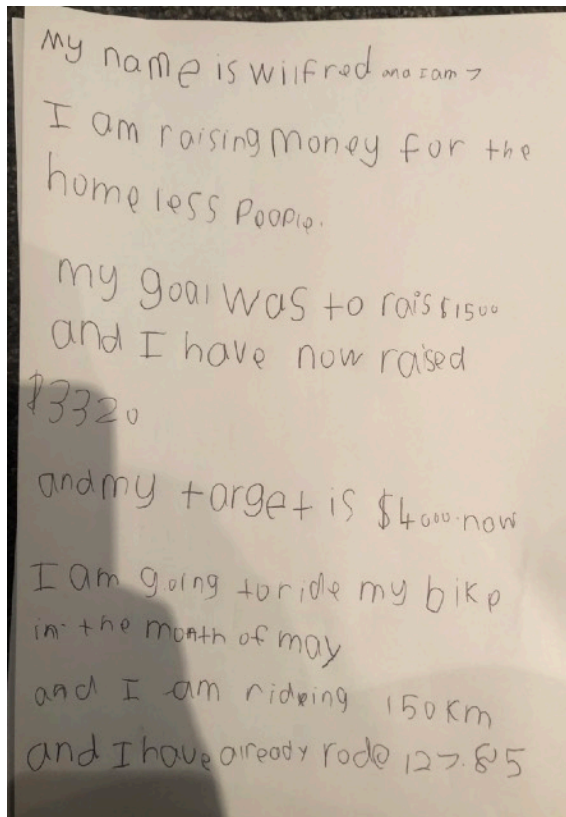 My name is wilfred and I am 7
I am raising money for the
homeless people.
my goal was to rais $1500
and I have now raised
$3320
and my target is $4000. now
I am going to ride my bike
in the month of may
and I am rideing 150 Km
and I have already rode 127.85